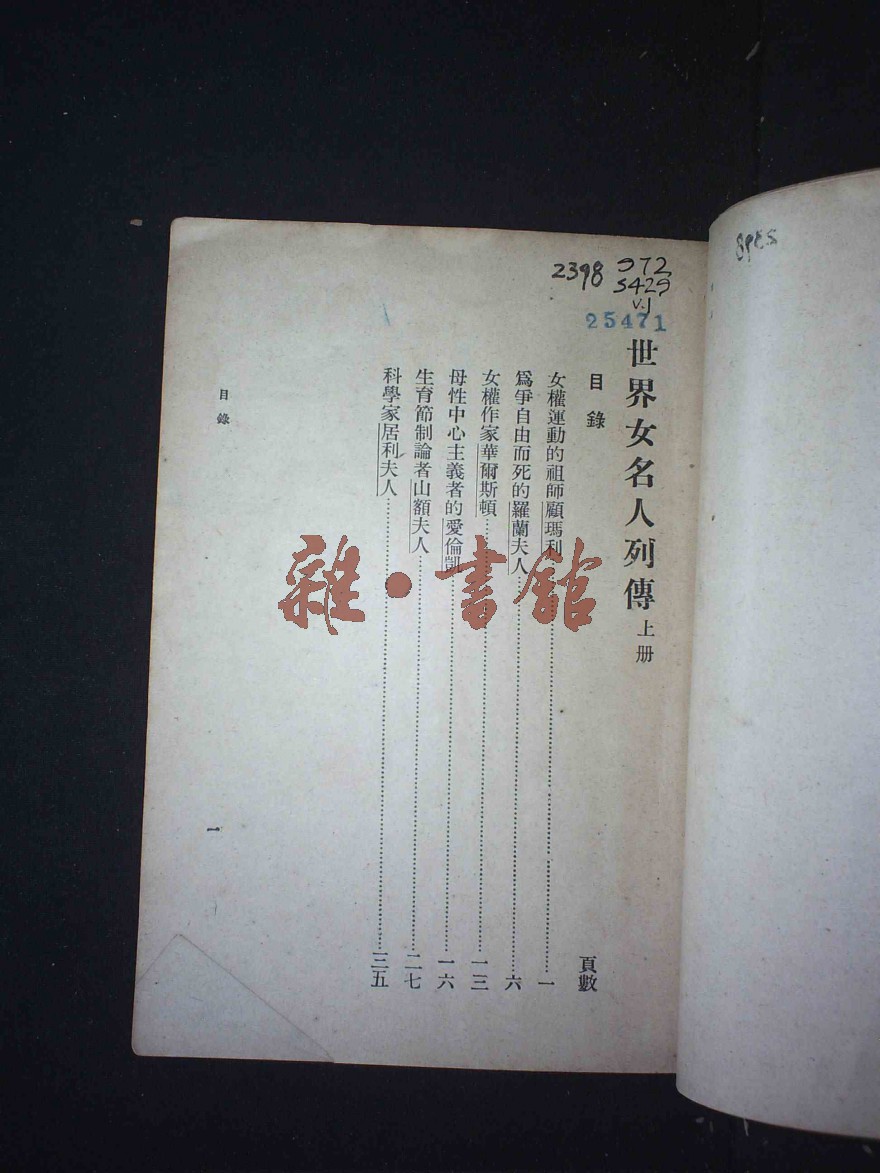 2398 972
S429
v.1
25471
世界女名人列傳 上册
目錄
頁數
女權運動的祖師顧瑪利……一
爲爭自由而死的羅蘭夫人……六
女權作家華爾斯頓……一三
母性中心主義者的愛倫凱……一六
生育節制論者山額夫人……二七
科學家居利夫人……三五
目錄
一
雜·書館